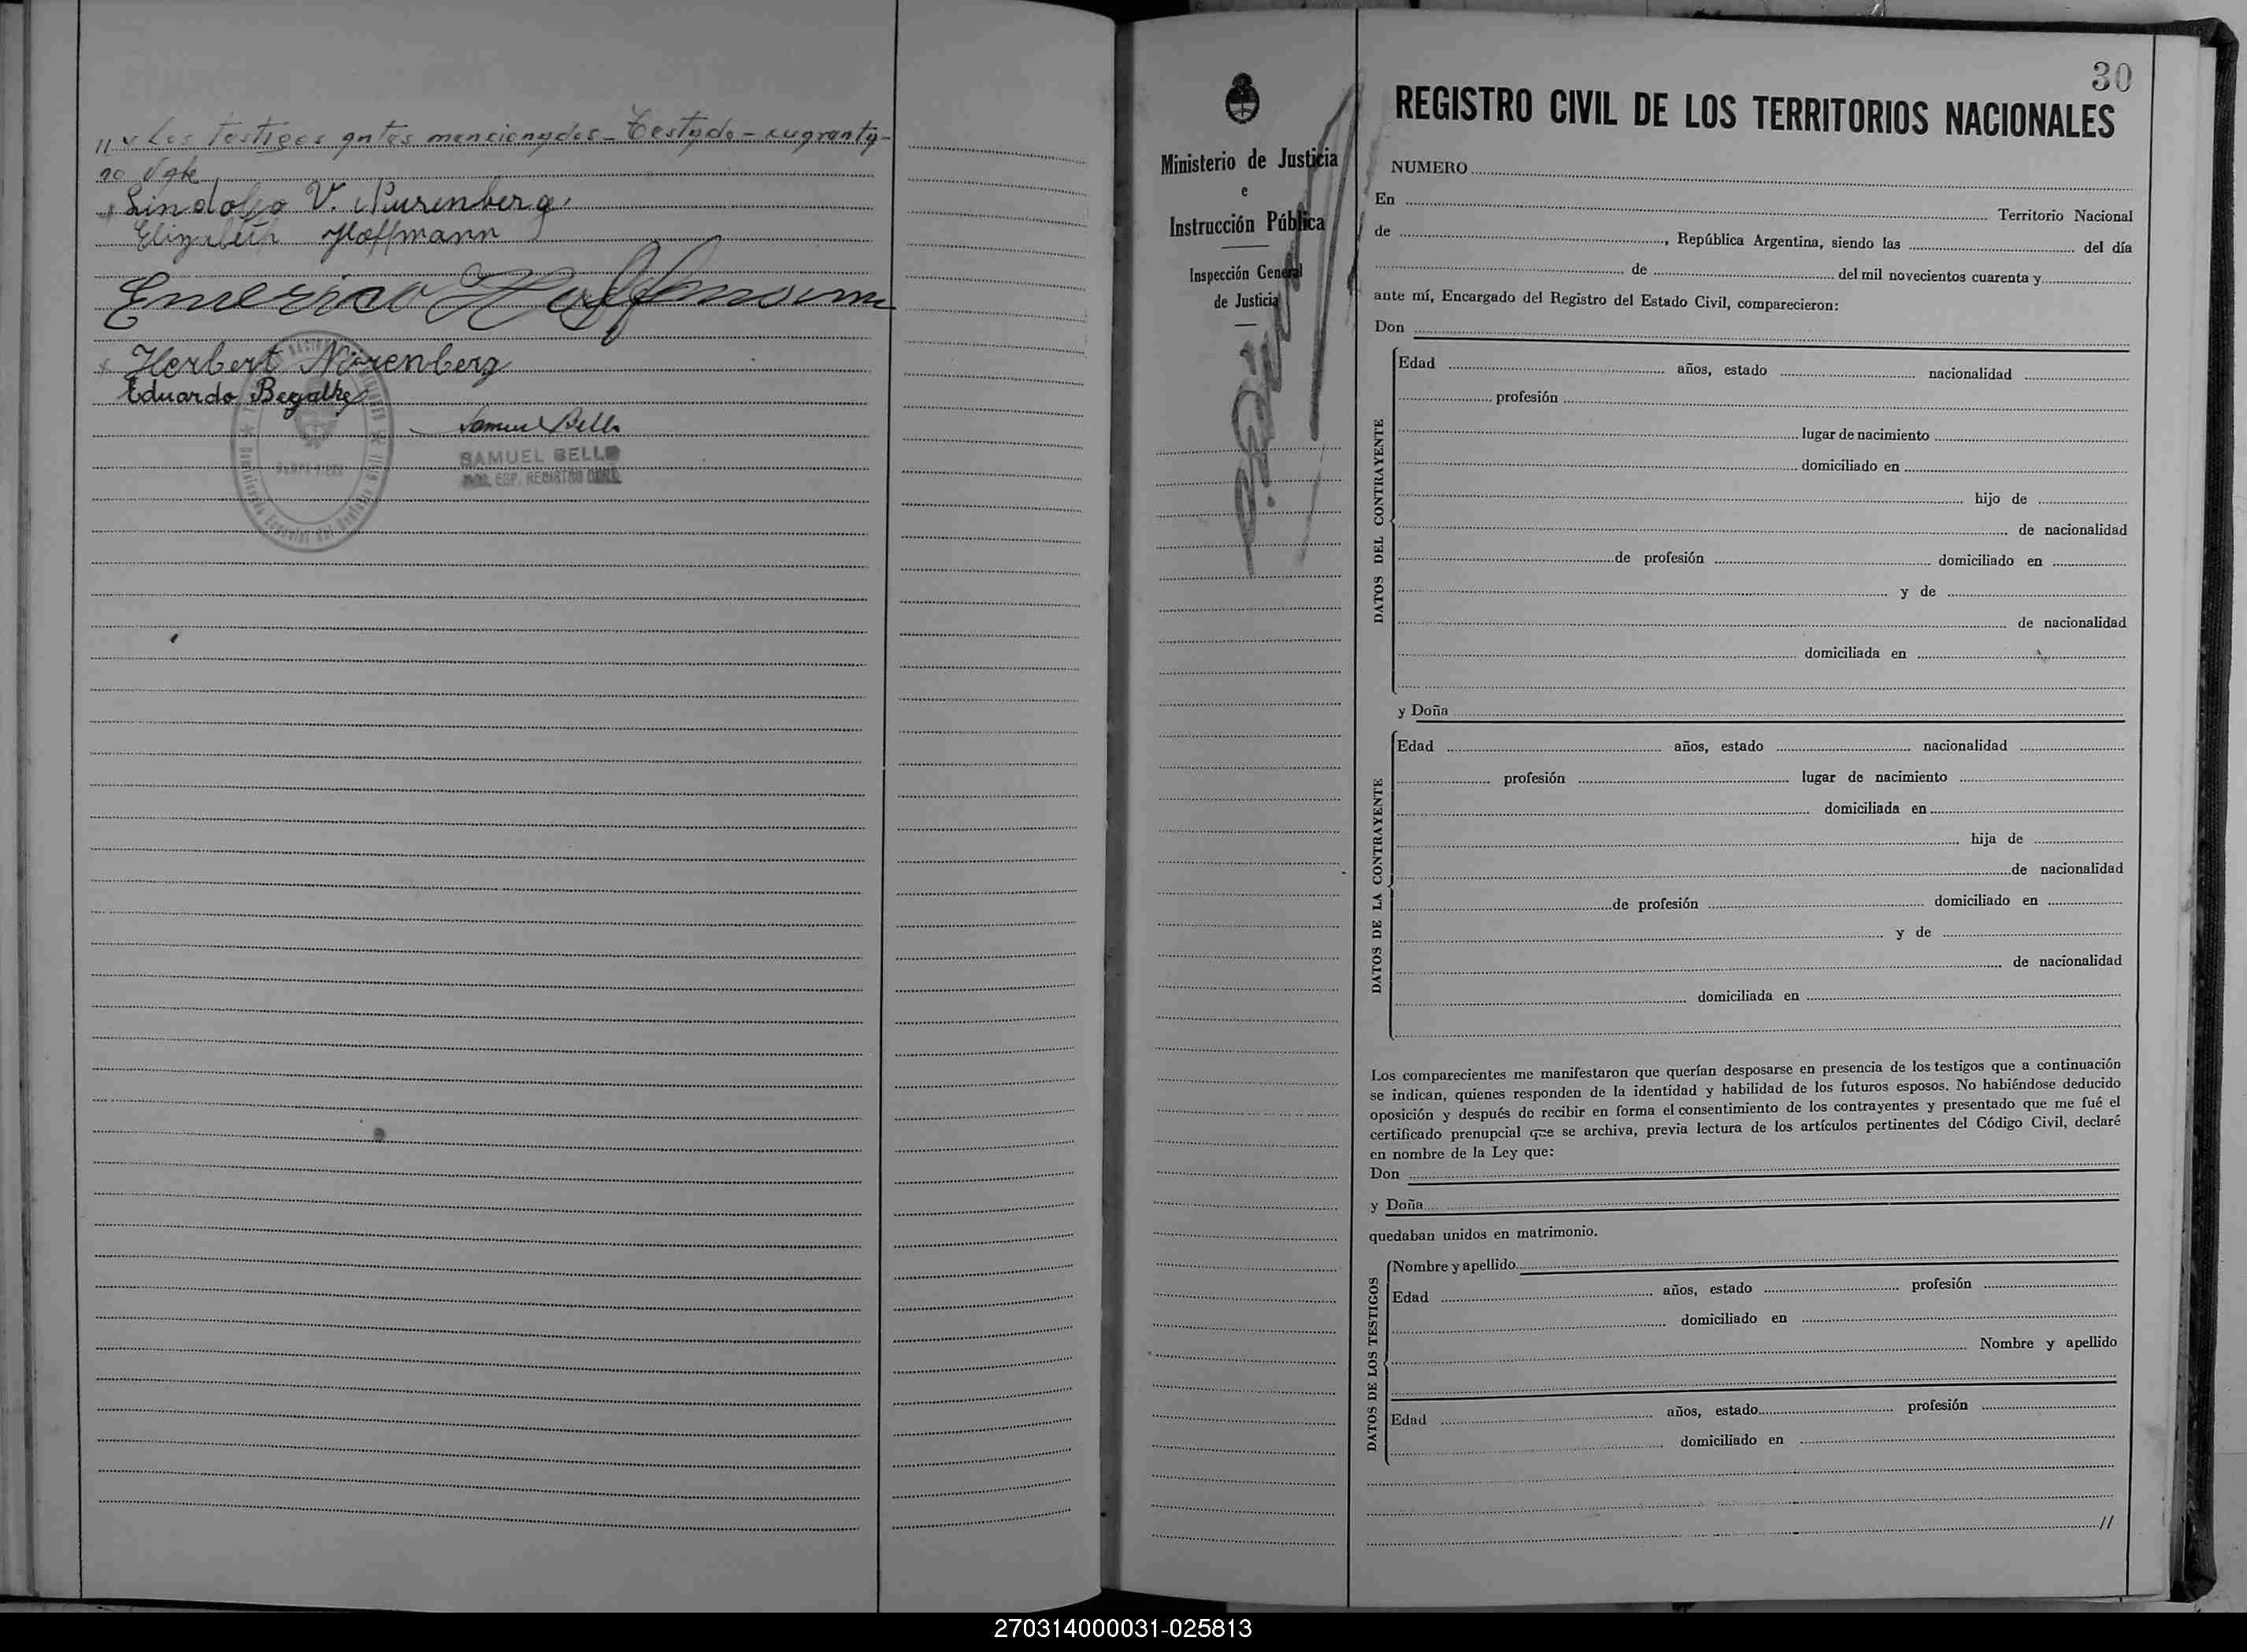 // y los testigos antes mencionados - Testado - cuarenta -
no Vale
Lindolfo V. Nurenberg
Elizabeth Hoffmann
Emerico Hoffmann
Herbert Nürenberg
Eduardo Begalke
Samuel Bello
SAMUEL BELLO
ESP. REGISTRO CIVIL
30
REGISTRO CIVIL DE LOS TERRITORIOS NACIONALES
Ministerio de Justicia
e
Instrucción Pública
Inspección General
de Justicia
NUMERO
En Territorio Nacional
de , República Argentina, siendo las del día
de del mil novecientos cuarenta y
ante mí, Encargado del Registro del Estado Civil, comparecieron:
Don
DATOS DEL CONTRAYENTE
Edad años, estado nacionalidad
profesión
lugar de nacimiento
domiciliado en
hijo de
de nacionalidad
de profesión domiciliado en
y de
de nacionalidad
domiciliada en
y Doña
DATOS DE LA CONTRAYENTE
Edad años, estado nacionalidad
profesión lugar de nacimiento
domiciliada en
hija de
de nacionalidad
de profesión domiciliado en
y de
de nacionalidad
domiciliada en
Los comparecientes me manifestaron que querían desposarse en presencia de los testigos que a continuación
se indican, quienes responden de la identidad y habilidad de los futuros esposos. No habiéndose deducido
oposición y después de recibir en forma el consentimiento de los contrayentes y presentado que me fué el
certificado prenupcial que se archiva, previa lectura de los artículos pertinentes del Código Civil, declaré
en nombre de la Ley que:
Don
y Doña
quedaban unidos en matrimonio.
DATOS DE LOS TESTIGOS
Nombre y apellido
Edad años, estado profesión
domiciliado en
Nombre y apellido
Edad años, estado profesión
domiciliado en
//
270314000031-025813